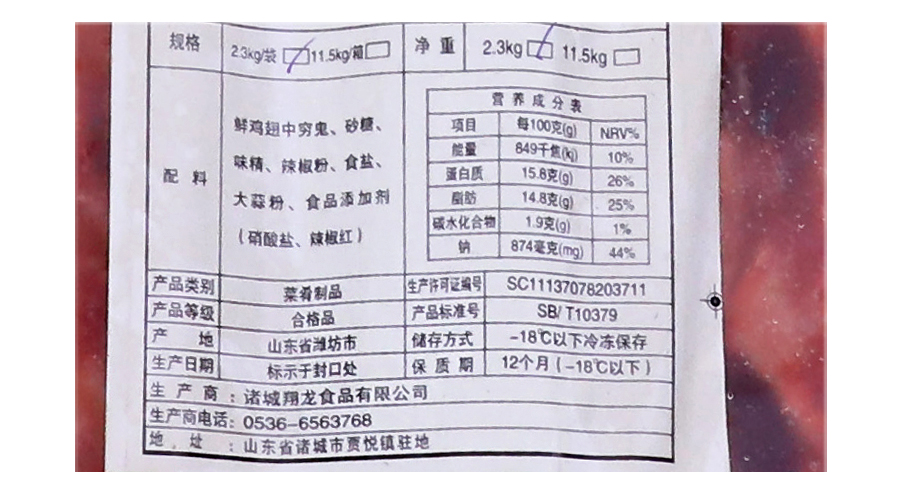 规格 2.3kg/袋 11.5kg/箱 净重 2.3kg 11.5kg
配料
鲜鸡翅中穷鬼、砂糖、
味精、辣椒粉、食盐、
大蒜粉、食品添加剂
(硝酸盐、辣椒红)
营养成分表
项目 每100克(g) NRV%
能量 849千焦(kj) 10%
蛋白质 15.8克(g) 26%
脂肪 14.8克(g) 25%
碳水化合物 1.9克(g) 1%
钠 874毫克(mg) 44%
产品类别 菜肴制品 生产许可证编号 SC11137078203711
产品等级 合格品 产品标准号 SB/T10379
产地 山东省潍坊市 储存方式 -18℃以下冷冻保存
生产日期 标示于封口处 保质期 12个月(-18℃以下)
生产商:诸城翔龙食品有限公司
生产商电话:0536-6563768
地址:山东省诸城市贾悦镇驻地